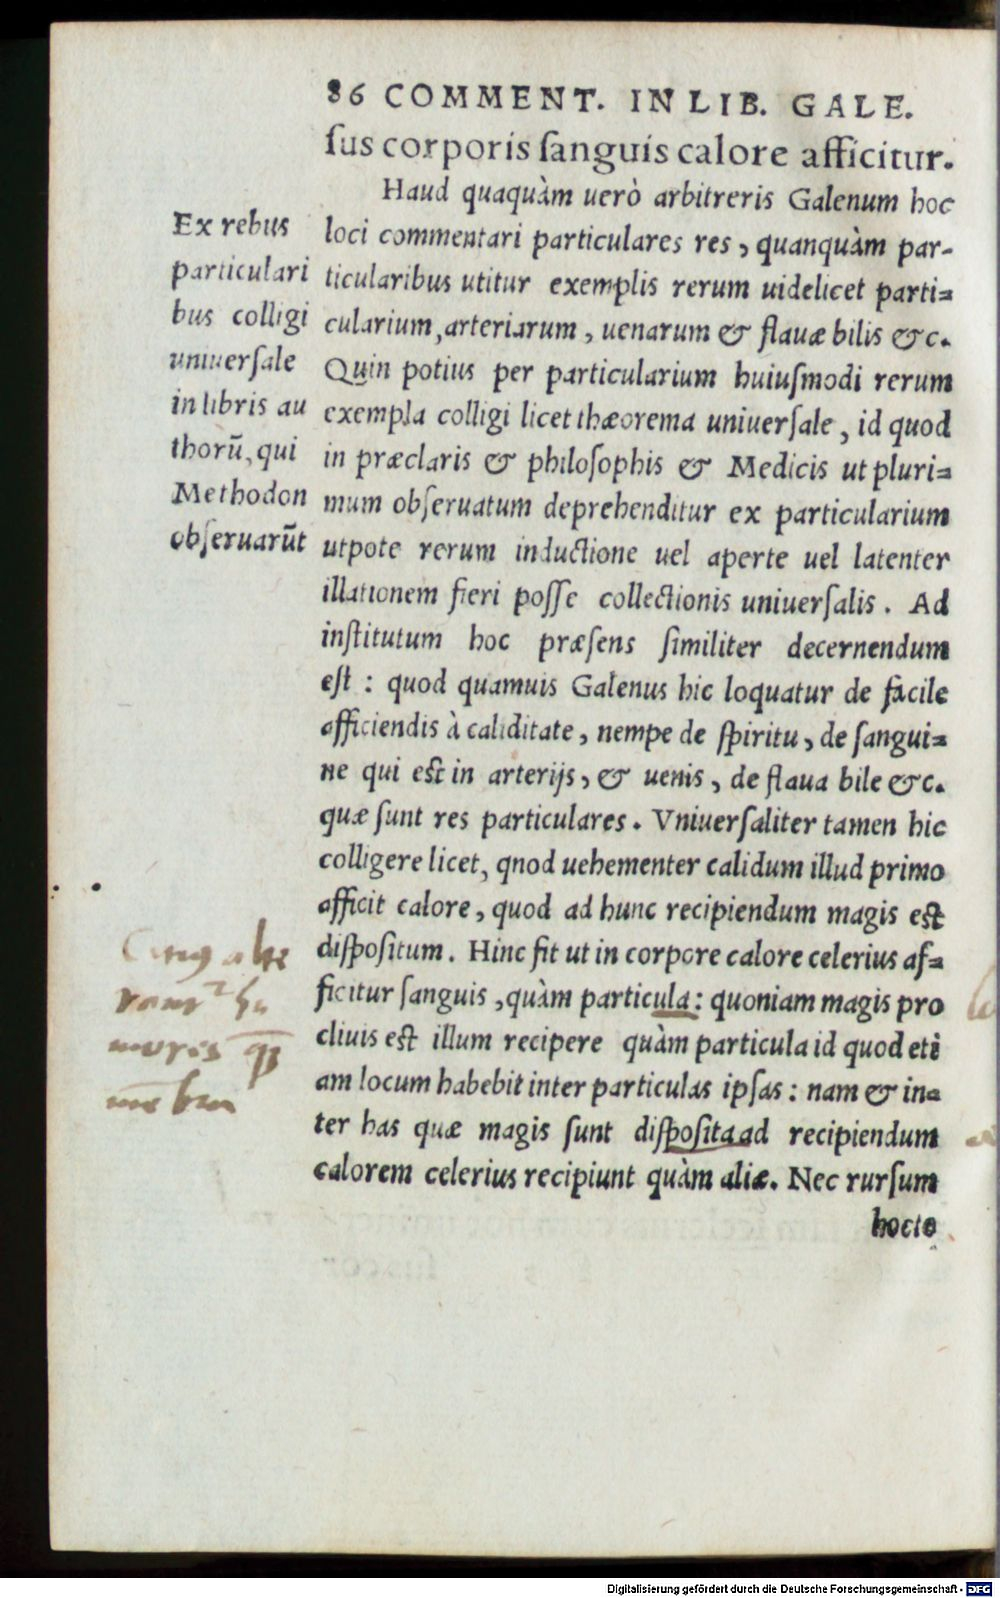 86 COMMENT. IN LIB. GALE.
ſus corporis ſanguis calore afficitur.
Haud quaquàm uerò arbitreris Galenum hoc
loci commentari particulares res, quanquàm par-
ticularibus utitur exemplis rerum uidelicet parti=
cularium, arteriarum, uenarum & flauæ bilis &c.
Quin potius per particularium huiuſmodi rerum
exempla colligi licet thæorema uniuerſale, id quod
in præclaris & philoſophis & Medicis ut pluri=
mum obſeruatum deprehenditur ex particularium
utpote rerum inductione uel aperte uel latenter
illationem fieri poſſe collectionis uniuerſalis. Ad
inſtitutum hoc præſens ſimiliter decernendum
eſt : quod quamuis Galenus hic loquatur de facile
afficiendis à caliditate, nempe de ſpiritu, de ſangui=
ne qui eſt in arterijs, & uenis, de flaua bile &c.
quæ ſunt res particulares. Vniuerſaliter tamen hic
colligere licet, qnod uehementer calidum illud primo
afficit calore, quod ad hunc recipiendum magis eſt
diſpoſitum. Hinc fit ut in corpore calore celerius af=
ficitur ſanguis, quàm particula : quoniam magis pro
cliuis eſt illum recipere quàm particula id quod eti
am locum habebit inter particulas ipſas : nam & in=
ter has quæ magis ſunt diſpoſita ad recipiendum
calorem celerius recipiunt quàm aliæ. Nec rurſum
hocto
Ex rebus
particulari
bus colligi
uniuerſale
in libris au
thorũ, qui
Methodon
obſeruarũt
Digitalisierung gefördert durch die Deutsche Forschungsgemeinschaft - DFG